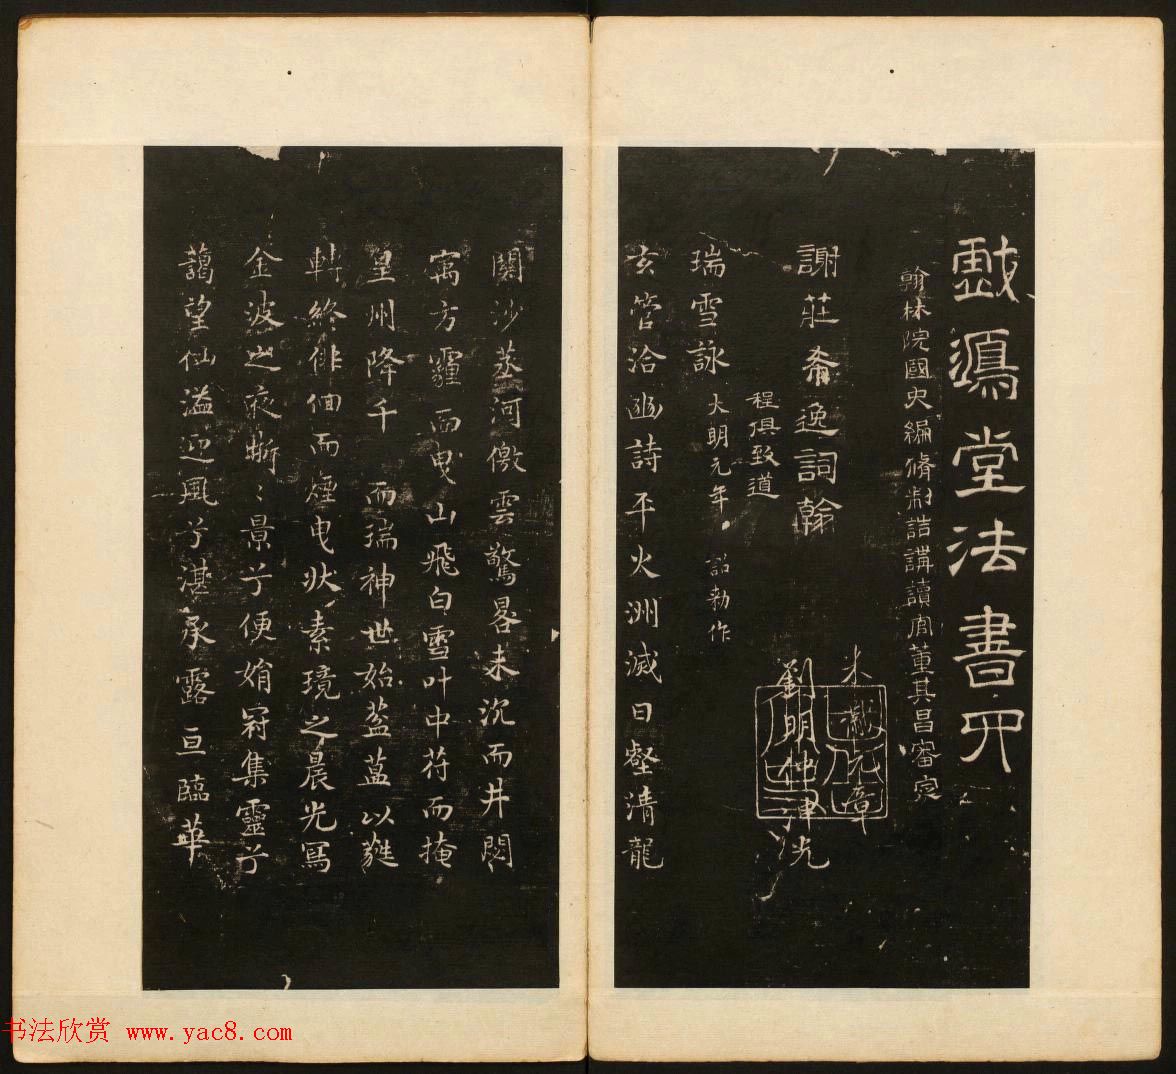 戲鴻堂法書四
翰林院國史編脩制誥講讀官董其昌審定
謝莊希逸詞翰
程俱致道
米黻元章
劉明仲
瑞雪詠 大明元年 詔勅作
玄管洽幽詩平火洲滅日壑清龍
關沙蒸河徼雲驚畧未沉而井閟
寓方霾而曳山飛白雪叶中苻而掩
皇州降千 而瑞神世始葢葢以蕤
轉終俳佪而煙曳狀素璄之晨光寫
金波之夜晣〻景兮便娟冠集靈兮
藹望仙溢迎風兮湛承露亘臨華
书法欣赏 www.yac8.com